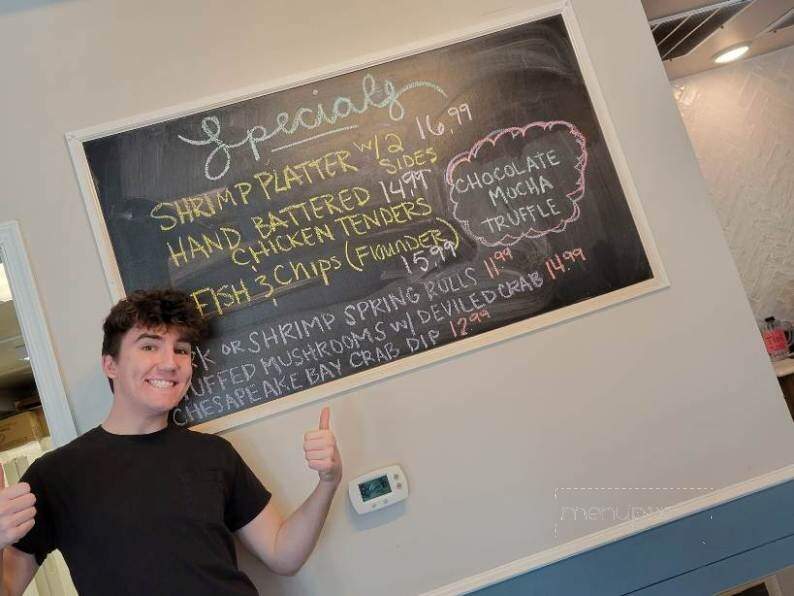 Specials
SHRIMP PLATTER W/2 SIDES 16.99
HAND BATTERED 14.99
CHICKEN TENDERS
FISH & Chips (FLOUNDER)
15.99
CHOCOLATE
MOCHA
TRUFFLE
OR SHRIMP SPRING ROLLS 11.99
MUSHROOMS W/ DEVILED CRAB 14.99
CHESAPEAKE BAY CRAB DIP 12.99